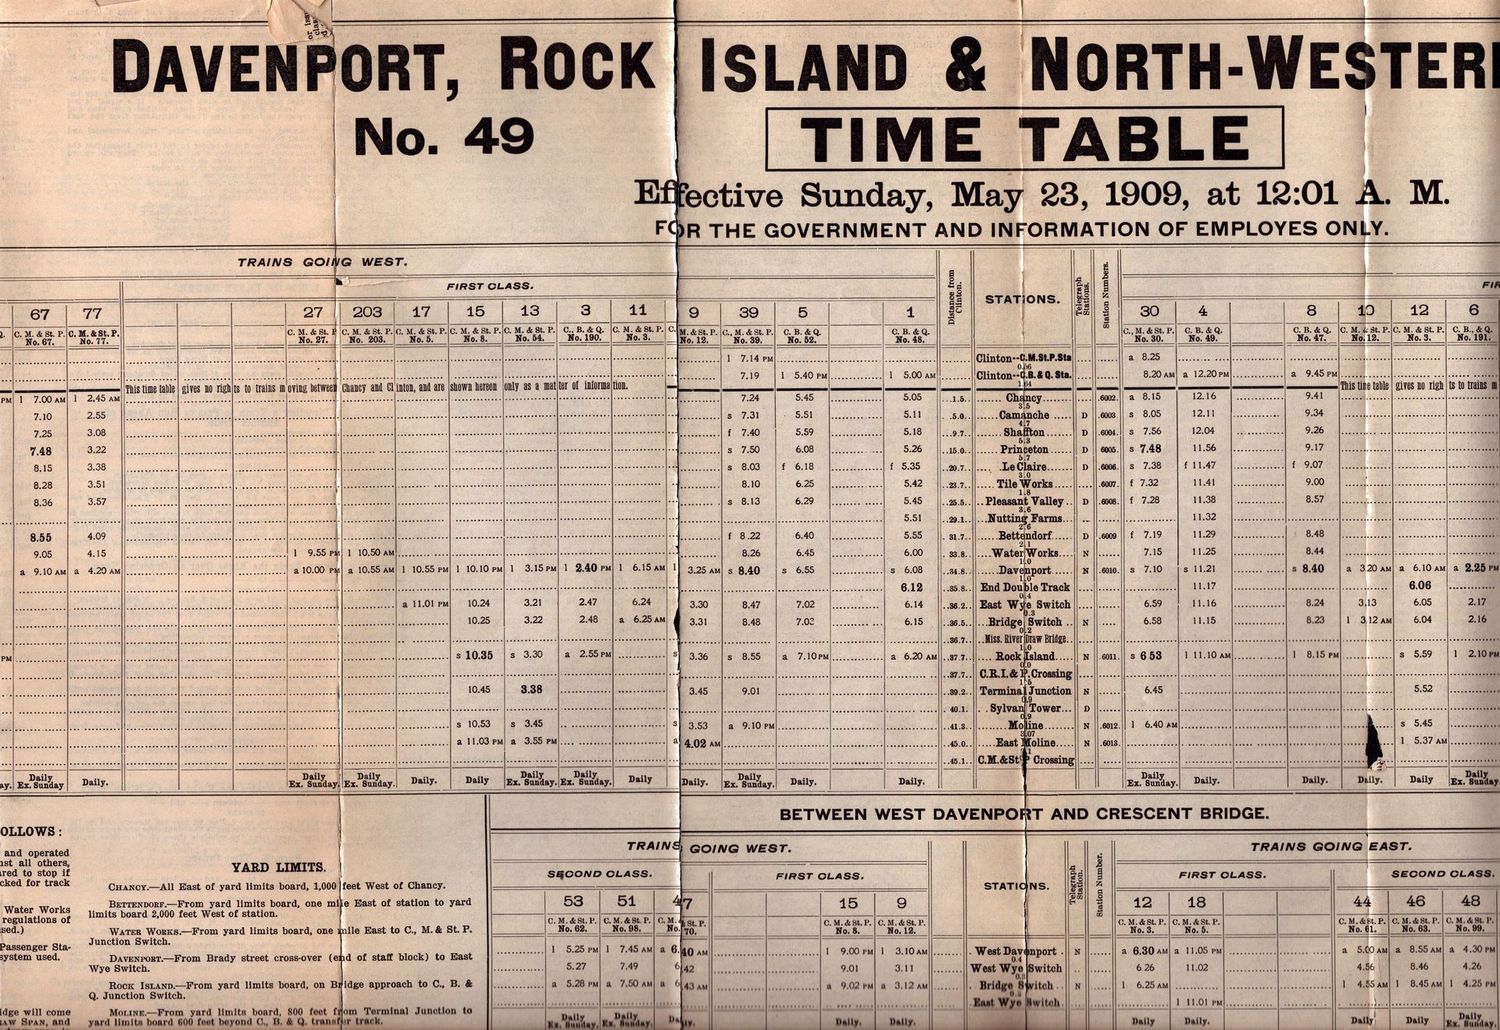 DAVENPORT, ROCK ISLAND & NORTH-WESTERN
No. 49
TIME TABLE
Effective Sunday, May 23, 1909, at 12:01 A. M.
FOR THE GOVERNMENT AND INFORMATION OF EMPLOYES ONLY.
TRAINS GOING WEST.
FIRST CLASS.
67 77 27 203 17 15 13 3 11 9 39 5 1 Distance from Clinton. STATIONS. Telegraph Stations. Station Numbers. 30 4 8 10 12 6
C. M. & St. P. No. 67. C. M. & St. P. No. 77. C. M. & St. P. No. 27. C. M. & St. P. No. 203. C. M. & St. P. No. 5. C. M. & St. P. No. 8. C. M. & St. P. No. 54. C., B. & Q. No. 190. C. M. & St. P. No. 3. C. M. & St. P. No. 12. C. M. & St. P. No. 39. C. B. & Q. No. 52. C. B. & Q. No. 48. C., M. & St. P. No. 30. C. B. & Q. No. 49. C. B. & Q. No. 47. C. M. & St. P. No. 12. C. M. & St. P. No. 3. C. B., & Q. No. 191.
l 7.14 PM Clinton--C.M.St.P.Sta a 8.25
0.06
7.19 l 5.40 PM l 5.00 AM Clinton--C.B.& Q. Sta. 8.20 AM a 12.20 PM a 9.45 PM
1.64
This time table gives no rights to trains moving between Chancy and Clinton, and are shown hereon only as a matter of information. This time table gives no righ ts to trains m
PM l 7.00 AM l 2.45 AM 7.24 5.45 5.05 1.5. Chancy 6002. a 8.15 12.16 9.41
3.5
7.10 2.55 s 7.31 5.51 5.11 5.0. Camanche D 6003 s 8.05 12.11 9.34
4.7
7.25 3.08 f 7.40 5.59 5.18 9.7. Shaffton D 6004. s 7.56 12.04 9.26
5.3
7.48 3.22 s 7.50 6.08 5.26 15.0. Princeton D 6005. s 7.48 11.56 9.17
5.7
8.15 3.38 s 8.03 f 6.18 f 5.35 20.7. Le Claire D 6006. s 7.38 f 11.47 f 9.07
3.0
8.28 3.51 8.10 6.25 5.42 23.7. Tile Works 6007. f 7.32 11.41 9.00
1.8
8.36 3.57 s 8.13 6.29 5.45 25.5. Pleasant Valley D 6008. f 7.28 11.38 8.57
3.6
5.51 29.1. Nutting Farms 11.32
2.6
8.55 4.09 f 8.22 6.40 5.55 31.7. Bettendorf D 6009 f 7.19 11.29 8.48
2.1
9.05 4.15 l 9.55 PM l 10.50 AM 8.26 6.45 6.00 33.8. Water Works N 7.15 11.25 8.44
1.0
a 9.10 AM a 4.20 AM a 10.00 PM a 10.55 AM l 10.55 PM l 10.10 PM l 3.15 PM l 2.40 PM l 6.15 AM l 3.25 AM s 8.40 s 6.55 s 6.08 34.8. Davenport N 6010. s 7.10 s 11.21 s 8.40 a 3.20 AM a 6.10 AM a 2.25 PM
1.0
6.12 35.8. End Double Track 11.17 6.06
0.4
a 11.01 PM 10.24 3.21 2.47 6.24 3.30 8.47 7.02 6.14 36.2. East Wye Switch 6.59 11.16 8.24 3.13 6.05 2.17
0.3
10.25 3.22 2.48 a 6.25 AM 3.31 8.48 7.03 6.15 36.5. Bridge Switch N 6.58 11.15 8.23 l 3 12 AM 6.04 2.16
0.2
36.7. Miss. River Draw Bridge.
1.0
PM s 10.35 s 3.30 a 2.55 PM s 3.36 s 8.55 a 7.10 PM a 6.20 AM 37.7. Rock Island N 6011. s 6 53 l 11.10 AM l 8.15 PM s 5.59 l 2.10 PM
0.0
37.7. C.R.I.& P.Crossing
1.5
10.45 3.38 3.45 9.01 39.2. Terminal Junction N 6.45 5.52
0.9
40.1. Sylvan Tower D
0.9
s 10.53 s 3.45 s 3.53 a 9.10 PM 41.3. Moline N 6012. l 6.40 AM s 5.45
a 11.03 PM a 3.55 PM a 4.02 AM 45.0. East Moline N 6013. l 5.37 AM
45.1. C.M.&St P Crossing
Daily Ex. Sunday Daily. Daily Ex. Sunday. Daily Ex. Sunday. Daily. Daily Daily Ex. Sunday. Daily Ex. Sunday. Daily Daily. Daily Ex. Sunday. Daily. Daily. Daily Ex. Sunday. Daily. Daily. Daily. Daily Daily Ex. Sunday.
OLLOWS:
and operated
all others,
to stop if
for track
Water Works
regulations of
Passenger Sta-
system used.
will come
AW SPAN, and
YARD LIMITS.
CHANCY.—All East of yard limits board, 1,000 feet West of Chancy.
BETTENDORF.—From yard limits board, one mile East of station to yard
limits board 2,000 feet West of station.
WATER WORKS.—From yard limits board, one mile East to C., M. & St. P.
Junction Switch.
DAVENPORT.—From Brady street cross-over (end of staff block) to East
Wye Switch.
ROCK ISLAND.—From yard limits board, on Bridge approach to C., B. &
Q. Junction Switch.
MOLINE.—From yard limits board, 800 feet from Terminal Junction to
yard limits board 600 feet beyond C., B. & Q. transfer track.
BETWEEN WEST DAVENPORT AND CRESCENT BRIDGE.
TRAINS GOING WEST. TRAINS GOING EAST.
SECOND CLASS. FIRST CLASS. STATIONS. Telegraph Station. Station Number. FIRST CLASS. SECOND CLASS.
53 51 47 15 9 12 18 44 46 48
C. M. & St. P. No. 62. C. M. & St. P. No. 98. C. M. & St. P. 70. C. M. & St. P. No. 8. C. M. & St. P. No. 12. C. M. & St. P. No. 3. C. M. & St. P. No. 5. C. M. & St. P. No. 61. C. M. & St. P. No. 63. C. M. & St. P. No. 99.
l 5.25 PM l 7.45 AM a 6.40 AM l 9.00 PM l 3.10 AM West Davenport N a 6.30 AM a 11.05 PM a 5.00 AM a 8.55 AM a 4.30 PM
0.4
5.27 7.49 6 42 9.01 3.11 West Wye Switch 6 26 11.02 4.56 8.46 4.26
a 5.28 PM a 7.50 AM a 6 43 AM a 9.02 PM a 3.12 AM Bridge Switch N l 6.25 AM l 4.55 AM l 8.45 AM l 4.25 PM
East Wye Switch l 11.01 PM
Daily Ex. Sunday. Daily Ex. Sunday. Daily. Daily. Daily. Daily Daily. Daily Daily Daily